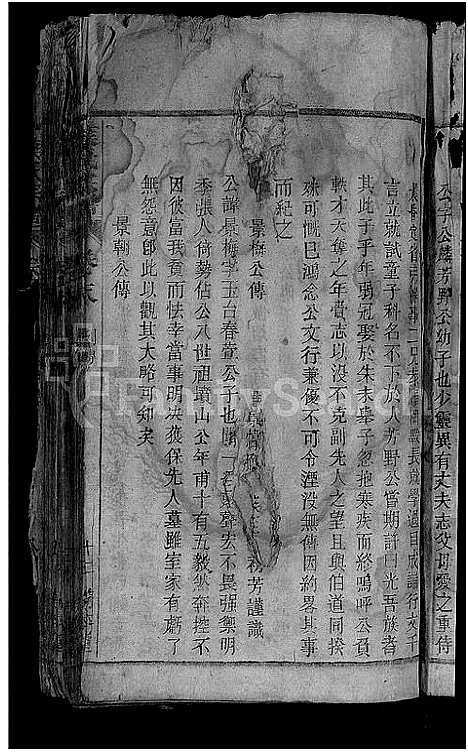 公字公麟芳野公幼子也少靈異有丈夫志父母愛之重侍
長就學過目成誦行文千
言立就試童子科名不下於人芳野公嘗期許曰光吾族者
其此子乎年弱冠娶於朱未舉子忽抱寒疾而終嗚呼公負
軼才天奪之年賫志以没不克副先人之望且與伯道同揆
殊可慨已鴻念公文行兼優不可令湮没無傳因約畧其事
而紀之
芳謹識
景梅公傳
公諱景梅字玉台春萱公子也賦一聲宏不畏强禦明
季張人倚勢佔公八世祖墳山公年甫十有五毅然奔控不
因彼富我貧而怯幸當事明决獲保先人墓雖室家有虧了
無怨意卽此以觀其大略可知矣
景翰公傳
卷末